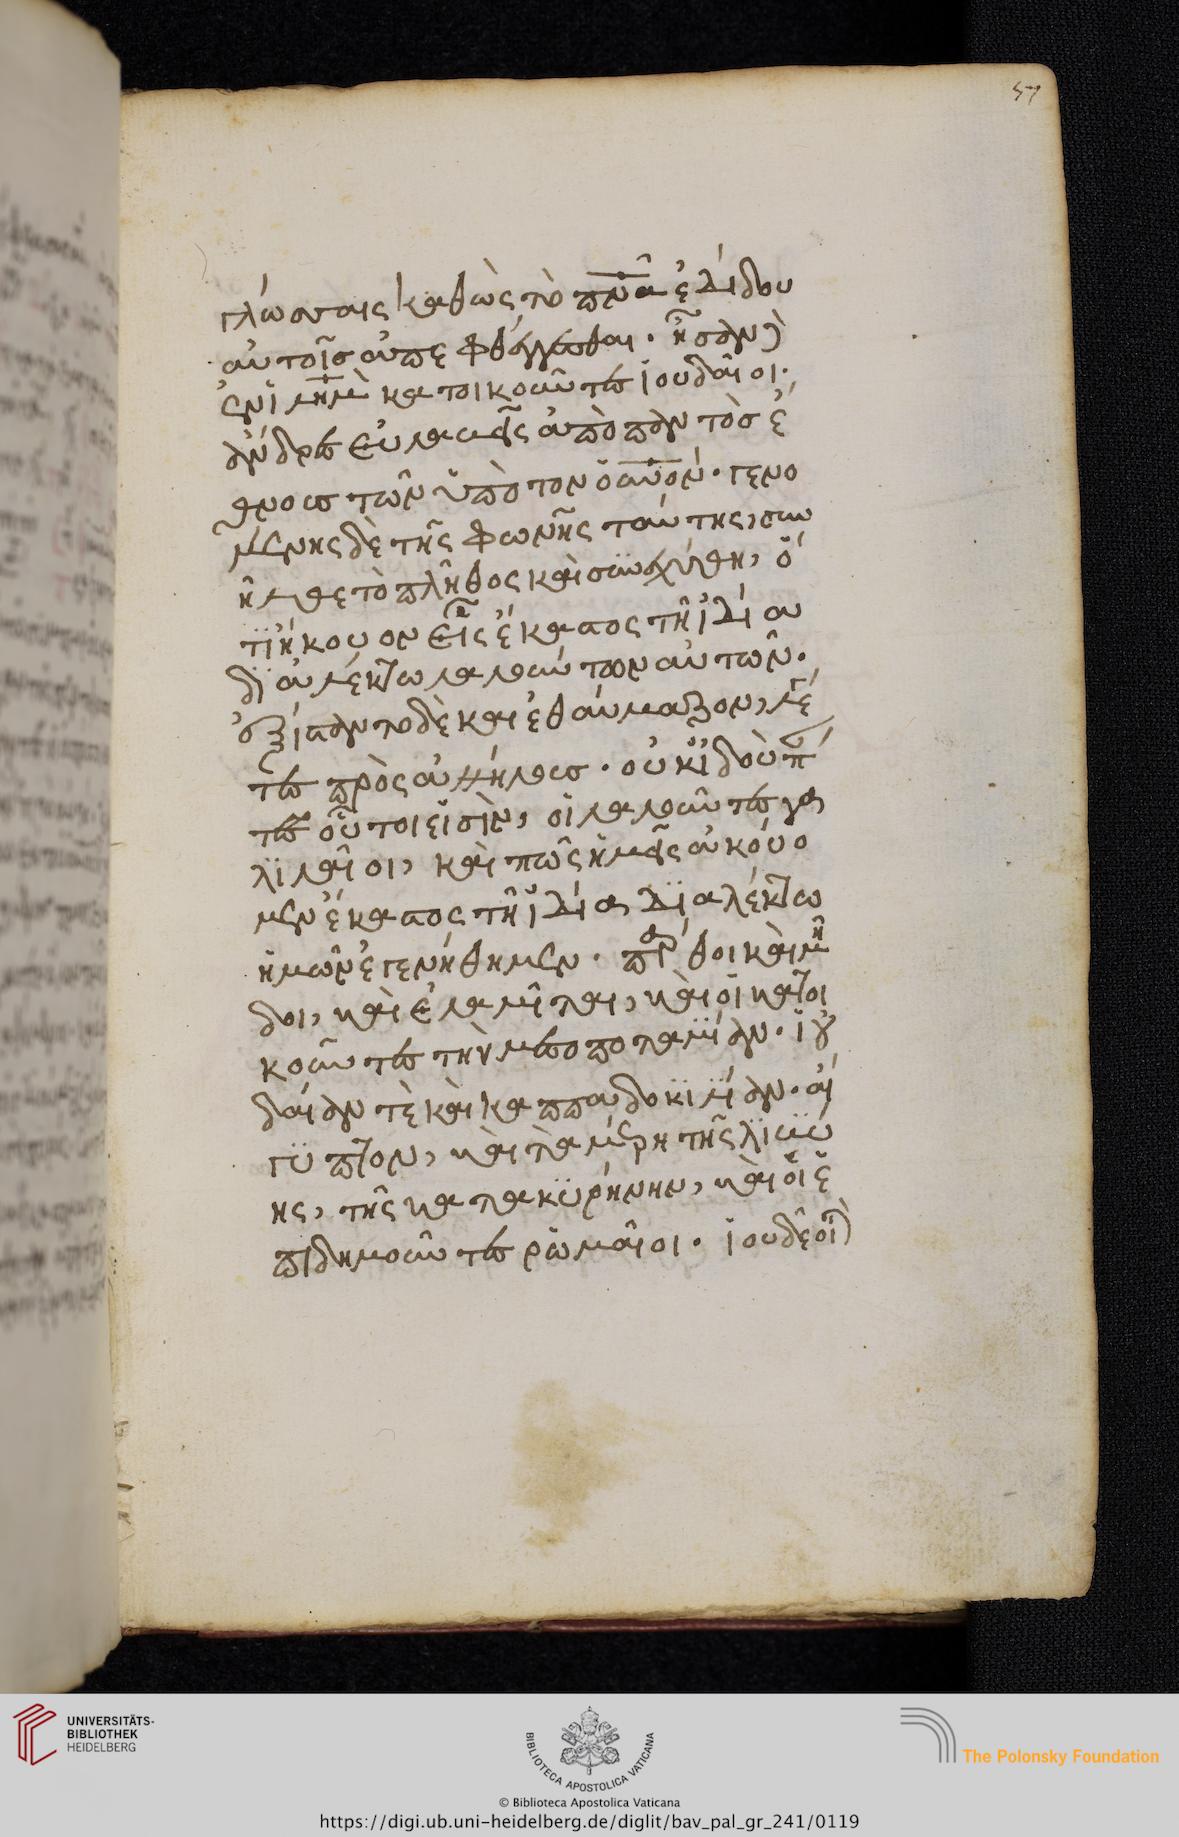 57
γλώσσαις καθὼς τὸ πν̅α ἐδίδου
αὐτοῖσ ἀποφθέγγεσθαι · ἦσαν δὲ
ἐν ἱλη̅μ κατοικοῦντες ἰουδαῖοι ·
ἄνδρες εὐλαβεῖς ἀπὸ παντὸσ ἔ
θνους τῶν ὑπὸ τὸν οὐ̅νον · γενο
μένης δὲ τῆς φωνῆς ταύτης, συν
ῆλθε τὸ πλῆθος καὶ συνεχύθη, ὅ
τι ἤκουον εἷς ἕκαστος τῆ ἰδία
διαλέκτω λαλούντων αὐτῶν ·
ἐξίσταντο δὲ καὶ ἐθαύμαζον, λέ
γοντες πρὸς ἀλλήλους · οὐκ ἰδοὺ πάν
τες οὗτοι εἰσὶν, οἱ λαλοῦντες γα
λιλαῖοι, καὶ πῶς ἡμεῖς ἀκούο
μεν ἕκαστος τῆ ἰδία διαλέκτω
ἡμῶν ἐγενήθημεν · πάρθοι καὶ μῆ
δοι, καὶ ἐλαμῖται, καὶ οἱ κατοι
κοῦντες τὴν μεσοποταμίαν · ἰου
δαίαν τὲ καὶ καππαδοκίαν · αἴ
γυπτον, καὶ τὰ μέρη τῆς λιβύ
ης, τῆς κατα κυρήνην, καὶ οἱ ἐ
πιδημοῦντες ρωμαῖοι · ἰουδαῖοι
UNIVERSITÄTS-
BIBLIOTHEK
HEIDELBERG
BIBLIOTECA APOSTOLICA VATICANA
The Polonsky Foundation
© Biblioteca Apostolica Vaticana
https://digi.ub.uni-heidelberg.de/diglit/bav_pal_gr_241/0119